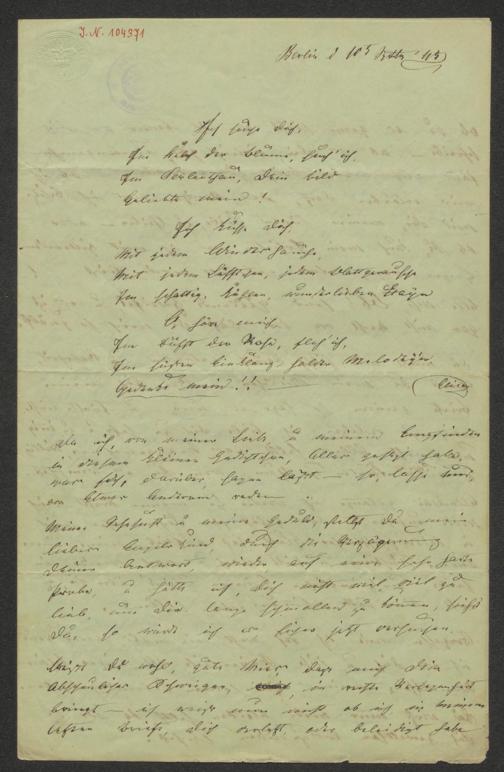 J. N. 104971
Berlin d 10t '43
Ich suche Dich,
Im Kelch der Blume, such' ich,
Im Perlenthau, Dein Bild
Geliebte mein!
Ich küsse Dich
Mit jedem Windeshauche,
Mit jedem Lüfftchen, jedem
Im schattig, kühlen, wunderlieben
O, hör mich
Im Duft der Rose, fleh' ich,
Im süßen Einklang holder Melodeyn
Gedenke mein!!
Da ich, von meiner Liebe u meinem Empfinden
in diesem kleinen Gedichtchen, Alles gesagt habe,
was sich, darüber sagen läßt — so lasse uns,
von Etwas Anderem reden
Meine Sehnsucht u meine Geduld, stellst Du mein
liebes, durch die Verzögerung
Deiner Antwort, wieder auf eine sehr harte
Probe, u hätte ich, Dich nicht viel, viel zu
lieb, um Dir lange schmollen zu können, siehst
Du, so würde ich es sicher jetzt versuchen
Weißt Du wohl, gute daß mich Dein
Abscheuliches Schweigen, in rechte Verlegenheit
bringt — ich weiß nun nicht ob ich in meinem
letzten Briefe Dich verletzt, oder beleidigt habe